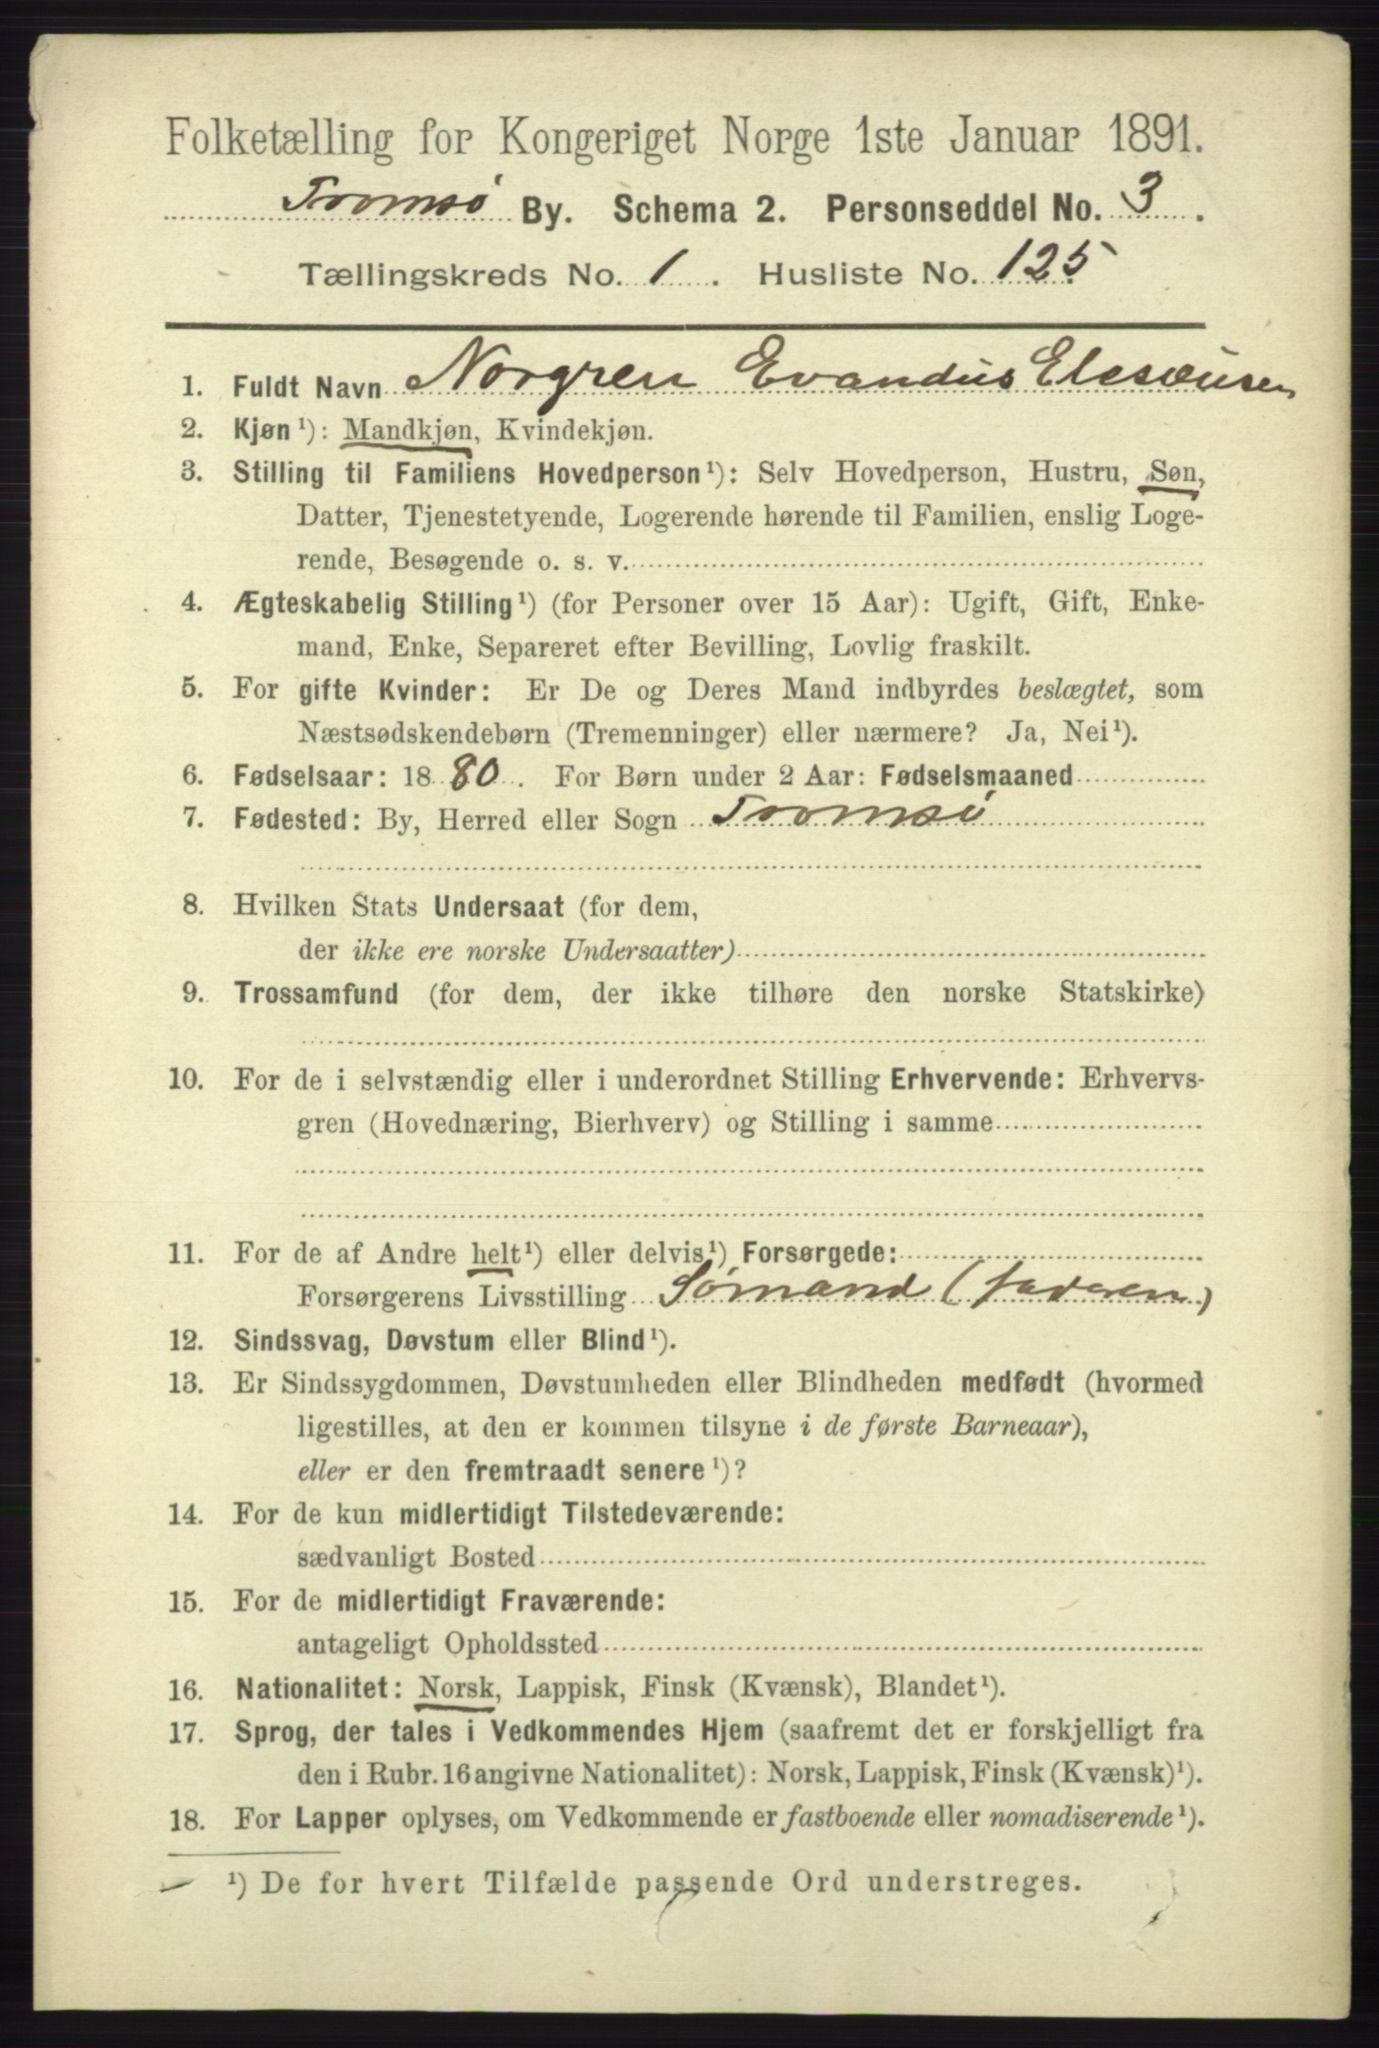 Folketælling for Kongeriget Norge 1ste Januar 1891.
Tromsø By. Schema 2. Personseddel No. 3.
Tællingskreds No. 1. Husliste No. 125
1. Fuldt Navn Norgren Evandus Elesæusen
2. Kjøn¹): Mandkjøn, Kvindekjøn.
3. Stilling til Familiens Hovedperson¹): Selv Hovedperson, Hustru, Søn,
Datter, Tjenestetyende, Logerende hørende til Familien, enslig Loge-
rende, Besøgende o. s. v.
4. Ægteskabelig Stilling¹) (for Personer over 15 Aar): Ugift, Gift, Enke-
mand, Enke, Separeret efter Bevilling, Lovlig fraskilt.
5. For gifte Kvinder: Er De og Deres Mand indbyrdes beslægtet, som
Næstsødskendebørn (Tremenninger) eller nærmere? Ja, Nei¹).
6. Fødselsaar: 1880. For Børn under 2 Aar: Fødselsmaaned
7. Fødested: By, Herred eller Sogn Tromsø
8. Hvilken Stats Undersaat (for dem,
der ikke ere norske Undersaatter)
9. Trossamfund (for dem, der ikke tilhøre den norske Statskirke)
10. For de i selvstændig eller i underordnet Stilling Erhvervende: Erhvervs-
gren (Hovednæring, Bierhverv) og Stilling i samme
11. For de af Andre helt¹) eller delvis¹) Forsørgede:
Forsørgerens Livsstilling Sømand (faderen)
12. Sindssvag, Døvstum eller Blind¹).
13. Er Sindssygdommen, Døvstumheden eller Blindheden medfødt (hvormed
ligestilles, at den er kommen tilsyne i de første Barneaar),
eller er den fremtraadt senere¹)?
14. For de kun midlertidigt Tilstedeværende:
sædvanligt Bosted
15. For de midlertidigt Fraværende:
antageligt Opholdssted
16. Nationalitet: Norsk, Lappisk, Finsk (Kvænsk), Blandet¹).
17. Sprog, der tales i Vedkommendes Hjem (saafremt det er forskjelligt fra
den i Rubr. 16 angivne Nationalitet): Norsk, Lappisk, Finsk (Kvænsk)¹).
18. For Lapper oplyses, om Vedkommende er fastboende eller nomadiserende¹).
¹) De for hvert Tilfælde passende Ord understreges.